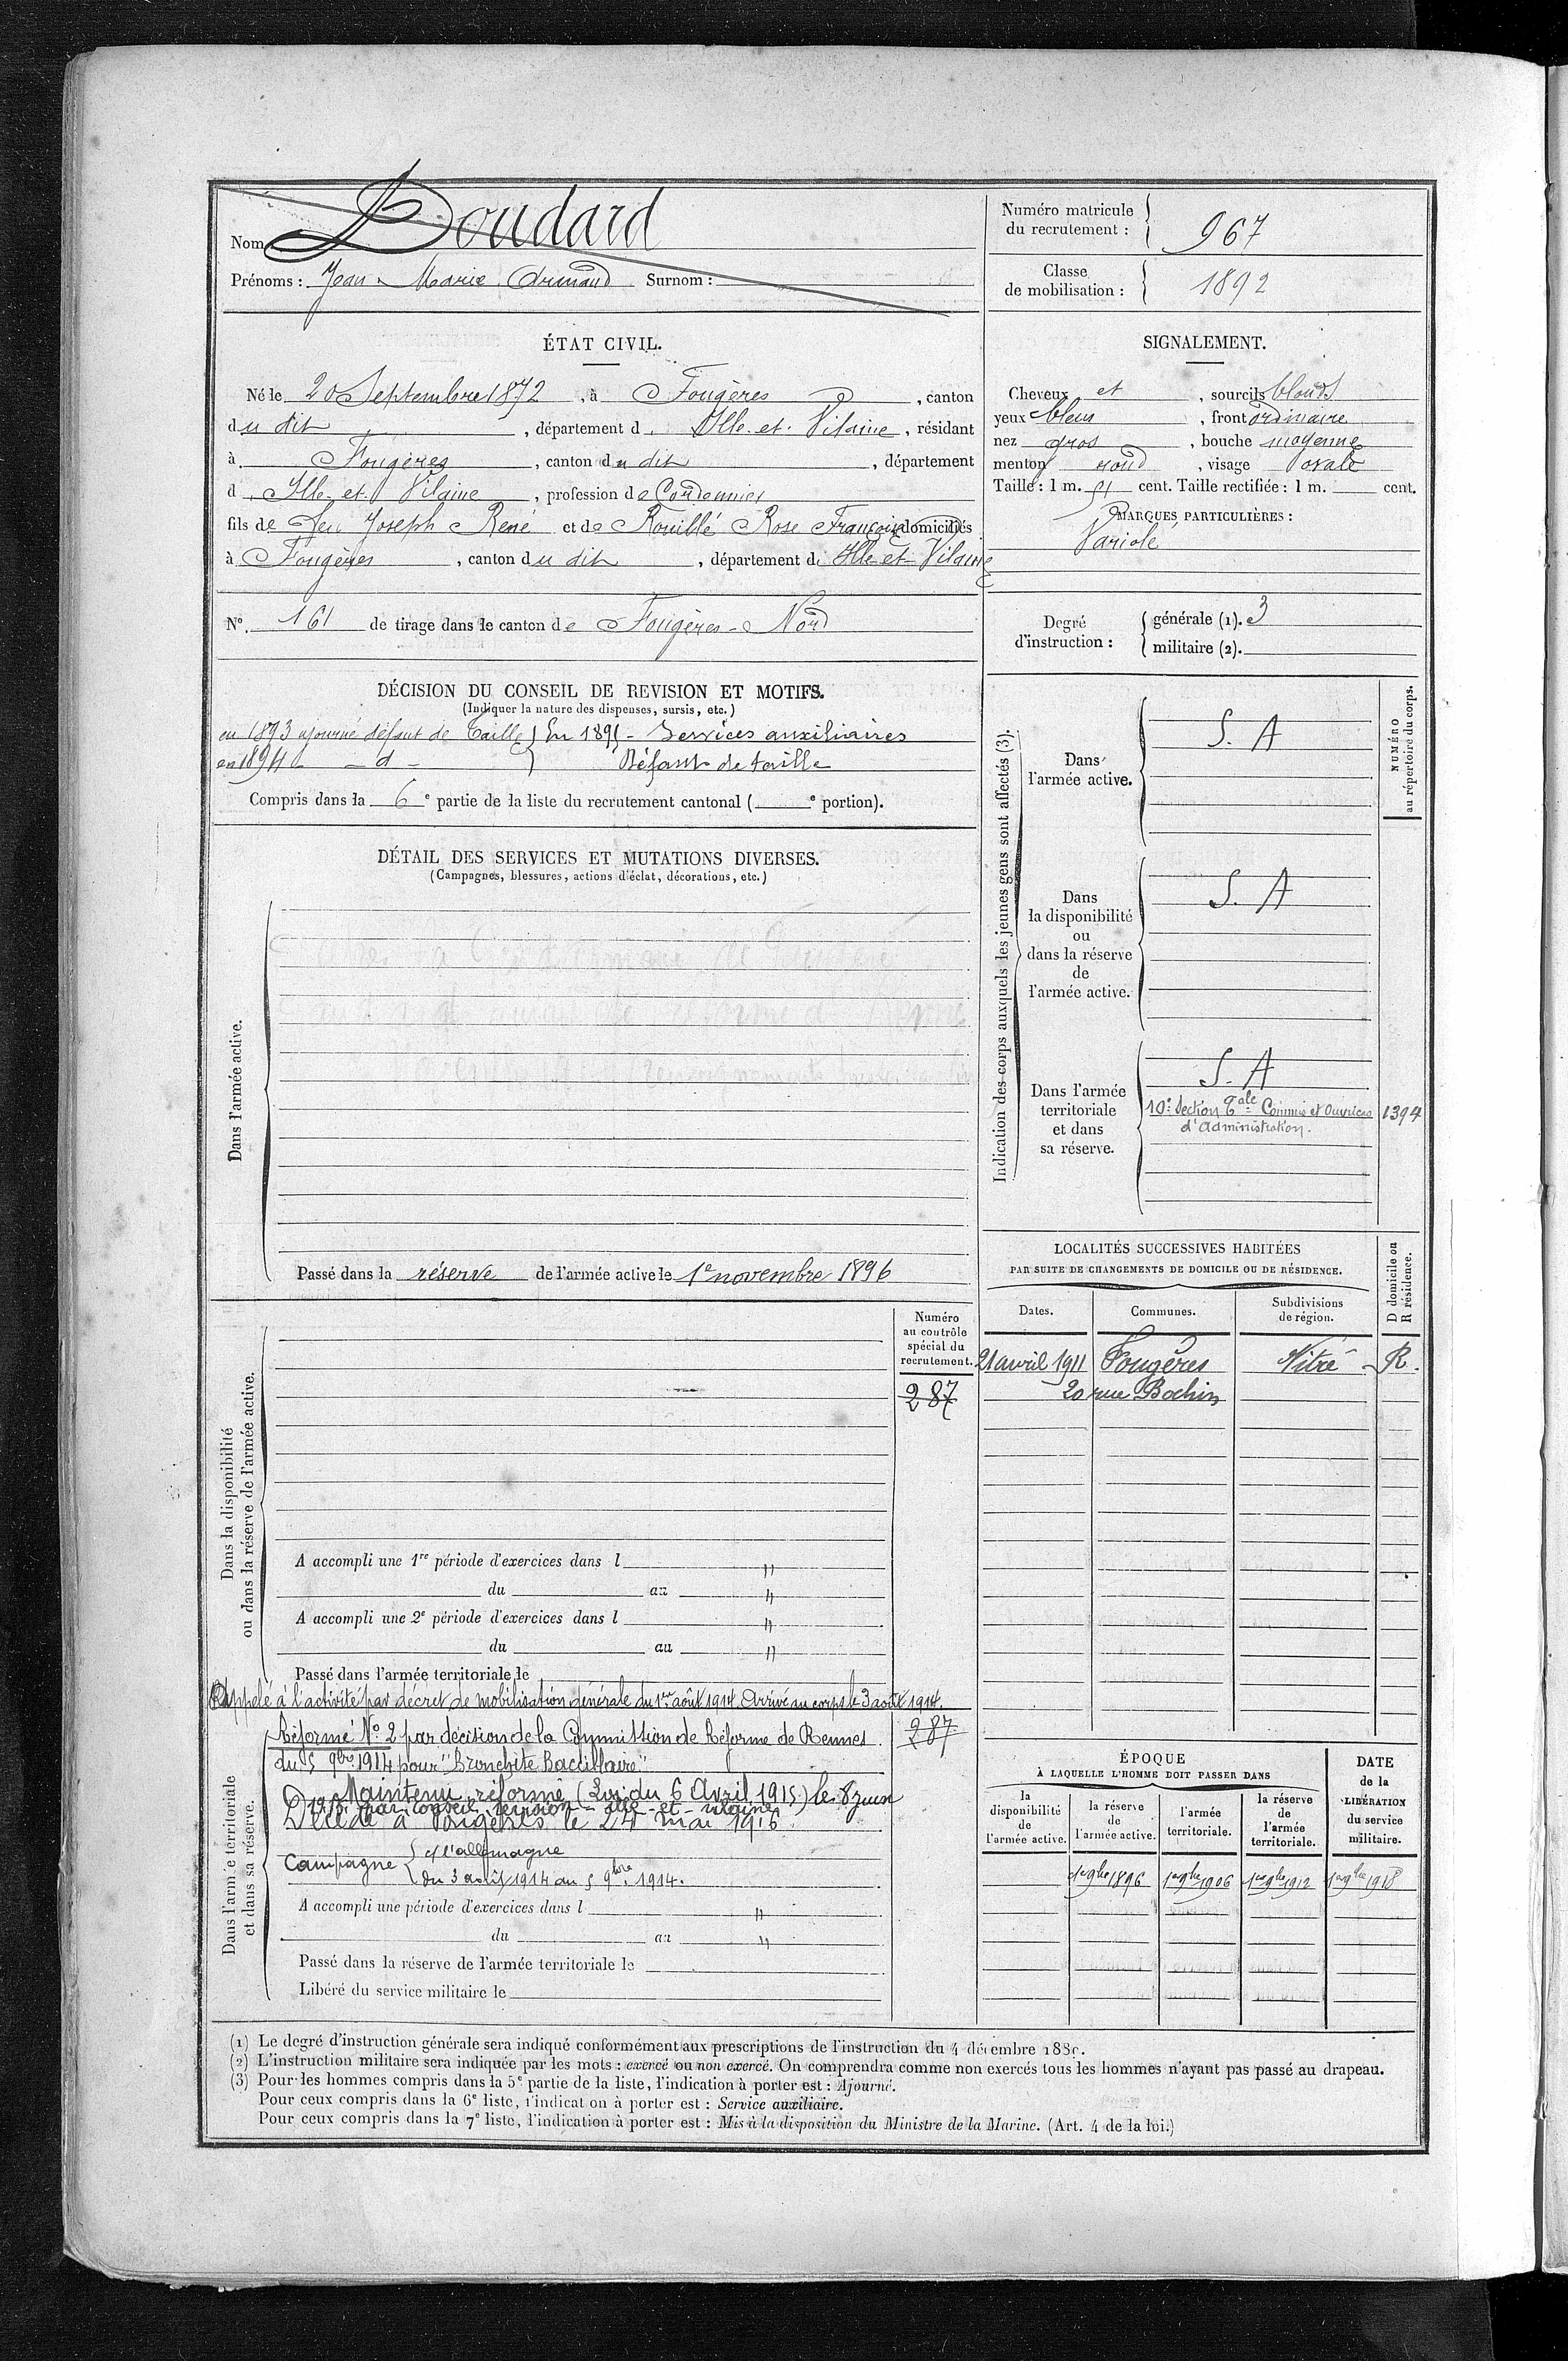 Nom Boudard
Prénoms : Jean Marie Armand Surnom :
Numéro matricule du recrutement : 967
Classe de mobilisation : 1892
ÉTAT CIVIL.
Né le 20 Septembre 1872, à Fougères, canton
du dit, département d' Ille-et-Vilaine, résidant
à Fougères, canton du dit, département
d' Ille-et-Vilaine, profession de Cordonnier
fils de feu Joseph René et de Rouillé Rose Françoise domiciliés
à Fougères, canton du dit, département d' Ille-et-Vilaine
N° 161 de tirage dans le canton de Fougères-Nord
SIGNALEMENT.
Cheveux et, sourcils blonds
yeux bleus, front ordinaire
nez gros, bouche moyenne
menton rond, visage ovale
Taille : 1 m. 51 cent. Taille rectifiée : 1 m. cent.
MARQUES PARTICULIÈRES :
Variolé
Degré d'instruction : générale (1). 3
militaire (2).
DÉCISION DU CONSEIL DE REVISION ET MOTIFS.
(Indiquer la nature des dispenses, sursis, etc.)
en 1893 ajourné défaut de taille } En 1895 - Services auxiliaires
en 1894 - d - } Défaut de taille
Compris dans la 6e partie de la liste du recrutement cantonal ( e portion).
DÉTAIL DES SERVICES ET MUTATIONS DIVERSES.
(Campagnes, blessures, actions d'éclat, décorations, etc.)
Dans l'armée active.
Passé dans la réserve de l'armée active le 1e novembre 1896
Indication des corps auxquels les jeunes gens sont affectés (3).
NUMÉRO au répertoire du corps.
Dans l'armée active.
S. A
Dans la disponibilité ou dans la réserve de l'armée active.
S. A
Dans l'armée territoriale et dans sa réserve.
S. A
10e Section Commis et Ouvriers 1394
d'administration.
LOCALITÉS SUCCESSIVES HABITÉES
PAR SUITE DE CHANGEMENTS DE DOMICILE OU DE RÉSIDENCE.
D domicile ou R résidence.
Dates. Communes. Subdivisions de région.
21 avril 1911 Fougères Vitré R.
20 rue Bochin
Dans la disponibilité ou dans la réserve de l'armée active.
Numéro au contrôle spécial du recrutement.
287
A accompli une 1re période d'exercices dans l "
du au "
A accompli une 2e période d'exercices dans l "
du au "
Passé dans l'armée territoriale le
Rappelé à l'activité par décret de mobilisation générale du 1er août 1914. Arrivé au corps le 3 août 1914.
Dans l'armée territoriale et dans sa réserve.
Réformé N° 2 par décision de la Commission de Réforme de Rennes. 287
du 5 9bre 1914 pour "Bronchite Bacillaire"
Maintenu réformé (Loi du 6 Avril 1915) le 8 juin
1915 par conseil revision Ille-et-Vilaine
Décédé à Fougères le 24 mai 1916.
Campagne { c/ l'allemagne
du 3 août 1914 au 5 9bre 1914.
A accompli une période d'exercices dans l "
du au "
Passé dans la réserve de l'armée territoriale le
Libéré du service militaire le
ÉPOQUE
À LAQUELLE L'HOMME DOIT PASSER DANS
la disponibilité de l'armée active.
la réserve de l'armée active.
l'armée territoriale.
la réserve de l'armée territoriale.
DATE de la LIBÉRATION du service militaire.
1er 9bre 1896 1er 9bre 1906 1er 9bre 1912 1er 9bre 1918
(1) Le degré d'instruction générale sera indiqué conformément aux prescriptions de l'instruction du 4 décembre 1889.
(2) L'instruction militaire sera indiquée par les mots : exercé ou non exercé. On comprendra comme non exercés tous les hommes n'ayant pas passé au drapeau.
(3) Pour les hommes compris dans la 5e partie de la liste, l'indication à porter est : Ajourné.
Pour ceux compris dans la 6e liste, l'indication à porter est : Service auxiliaire.
Pour ceux compris dans la 7e liste, l'indication à porter est : Mis à la disposition du Ministre de la Marine. (Art. 4 de la loi.)